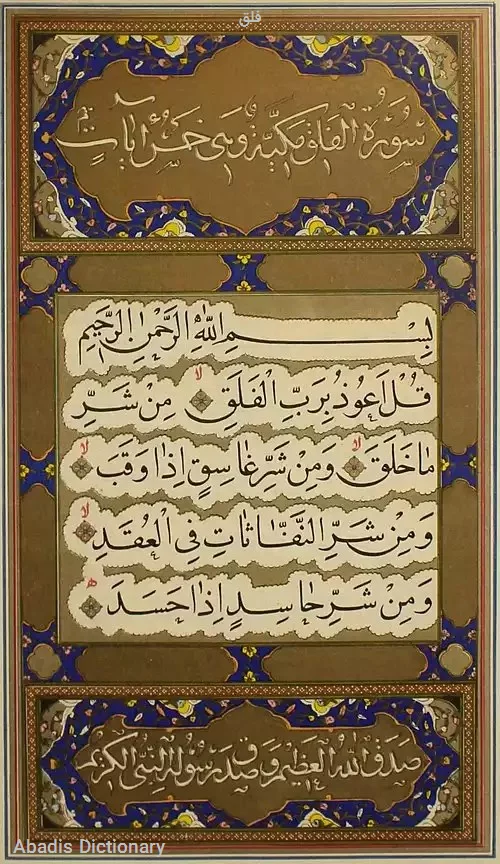 فلق
سورة الفلق مكية وهي خمس آيات
بِسْمِ اللّٰهِ الرَّحْمٰنِ الرَّحِيمِ
قُلْ اَعُوذُ بِرَبِّ الْفَلَقِ لا مِنْ شَرِّ
مٰا خَلَقَ لا وَمِنْ شَرِّ غٰاسِقٍ اِذٰا وَقَبَ لا
وَمِنْ شَرِّ النَّفّٰاثٰاتِ فِي الْعُقَدِ لا
وَمِنْ شَرِّ حٰاسِدٍ اِذٰا حَسَدَ
صدق الله العظيم وصدق رسوله النبي الكريم
Abadis Dictionary